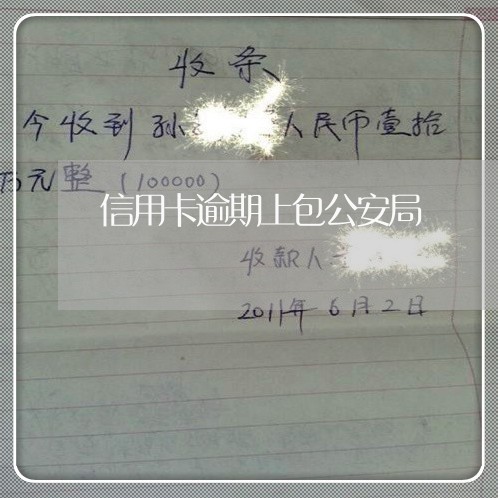 收条
今收到孙 人民币壹拾
万元整（100000）
信用卡逾期上包公安局
收款人
2011年6月2日